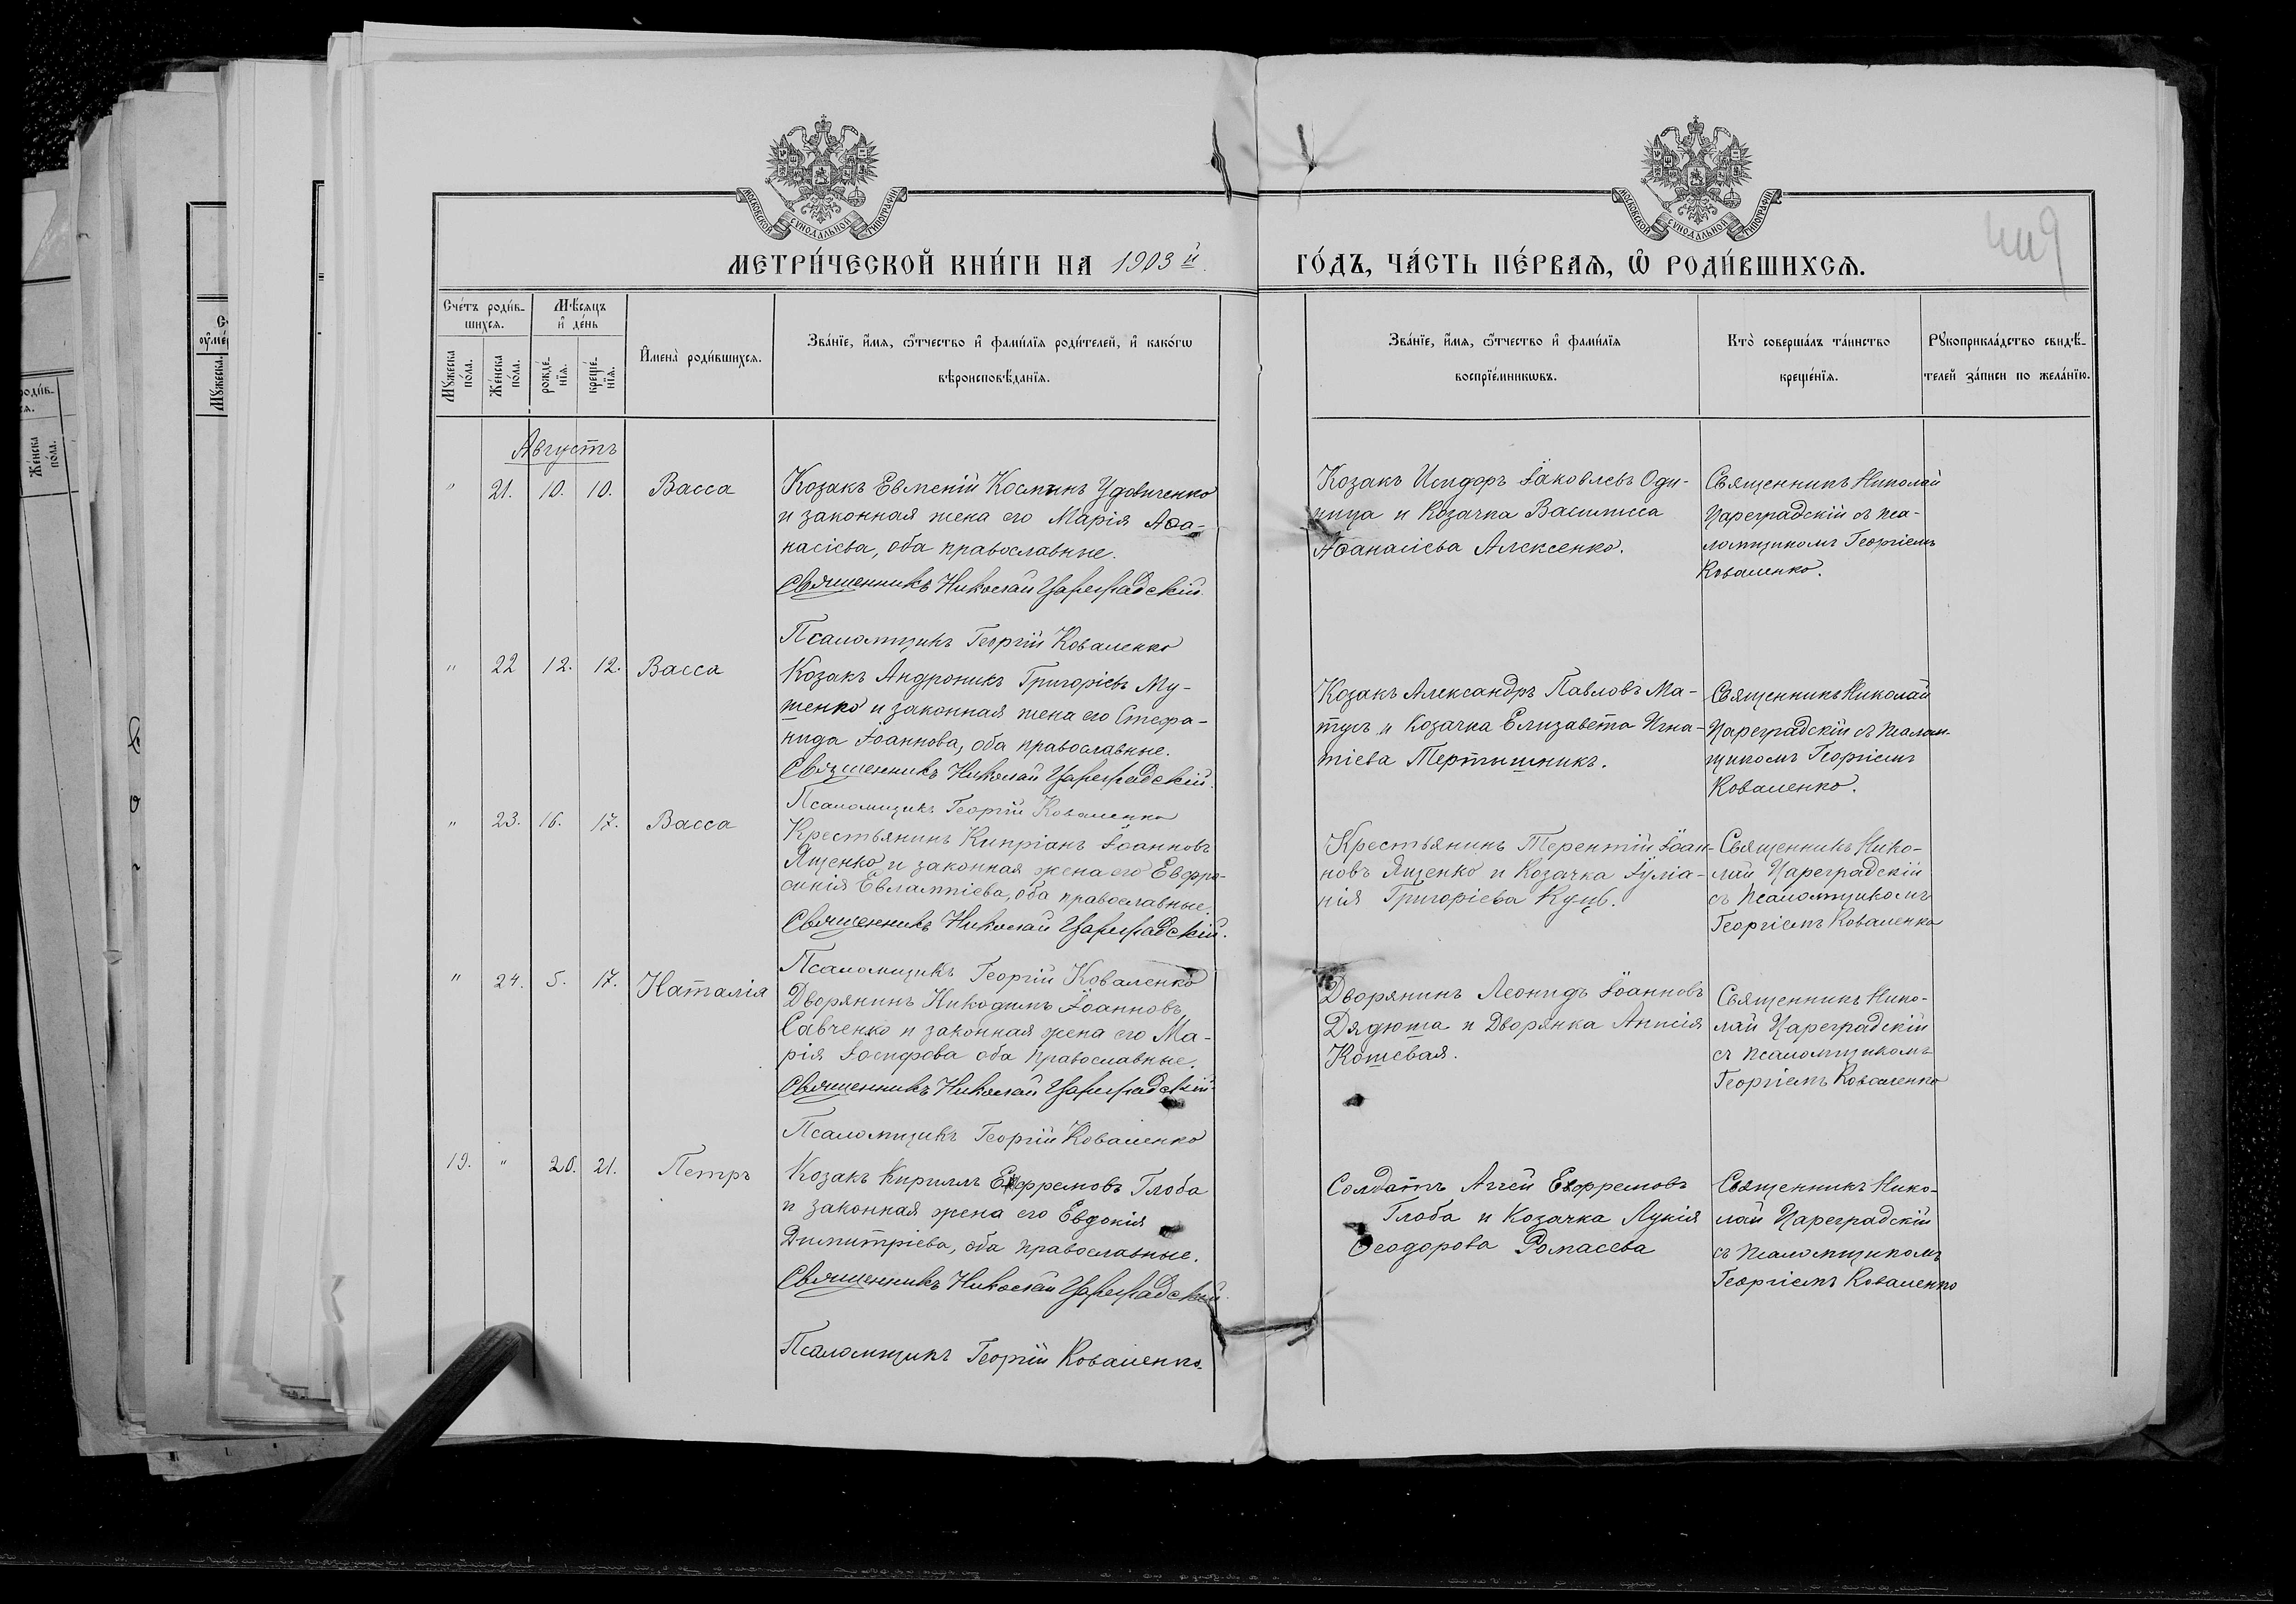 МОСКОВСКОЙ СѴНОДАЛЬНОЙ ТИПОГРАФІИ
МОСКОВСКОЙ СѴНОДАЛЬНОЙ ТИПОГРАФІИ
МЕТРИ́ЧЕСКОЙ КНИ́ГИ НА 1903й
ГО́ДЪ, ЧА́СТЬ ПЕ́РВАѦ, Ѡ҆ РОДИ́ВШИХСѦ.
Сче́тъ роди́в-
шихсѧ.
Мꙋ́жеска
по́ла.
Же́нска
по́ла.
Мѣ́сѧцъ
и҆ де́нь
рожде́-
нїѧ.
креще́-
нїѧ.
И҆мена̀ роди́вшихсѧ.
Зва́нїе, и҆́мѧ, ѻ҆́тчество и҆ фами́лїѧ роди́телей, и҆ како́гѡ
вѣроисповѣ́данїѧ.
Зва́нїе, и҆́мѧ, ѻ҆́тчество и҆ фами́лїѧ
воспрїе́мникѡвъ.
Кто̀ соверша́лъ та́инство
креще́нїѧ.
Рꙋкоприкла́дство свидѣ́-
телей за́писи по жела́нїю.
Августъ
" 21. 10. 10. Васса
Козакъ Евменій Косминъ Удовиченко
и законная жена его Марія Аѳа-
насіева, оба православные.
Священникъ Николай Цареградскій.
Псаломщикъ Георгій Коваленко
Козакъ Исидоръ Іаковлевъ Оди-
ница и Козачка Василисса
Аѳанасіева Алексенко.
Священникъ Николай
Цареградскій съ пса-
ломщикомъ Георгіемъ
Коваленко.
" 22 12. 12. Васса
Козакъ Андроникъ Григоріевъ Му-
шенко и законная жена его Стефа-
нида Іоаннова, оба православные.
Священникъ Николай Цареградскій.
Псаломщикъ Георгій Коваленко
Козакъ Александръ Павловъ Ма-
тусъ и Козачка Елизавета Игна-
тіева Тертишникъ.
Священникъ Николай
Цареградскій съ псалом-
щикомъ Георгіемъ
Коваленко.
" 23. 16. 17. Васса
Крестьянинъ Кипріанъ Іоанновъ
Ященко и законная жена его Евфро-
синія Евлампіева, оба православные.
Священникъ Николай Цареградскій.
Псаломщикъ Георгій Коваленко
Крестьянинъ Терентій Іоан-
новъ Ященко и Козачка Іуліа-
нія Григоріева Куцъ.
Священникъ Нико-
лай Цареградскій
съ псаломщикомъ
Георгіемъ Коваленко
" 24. 5. 17. Наталія
Дворянинъ Никодимъ Іоанновъ
Савченко и законная жена его Ма-
рія Іосифова оба православные.
Священникъ Николай Цареградскій
Псаломщикъ Георгій Коваленко
Дворянинъ Леонидъ Іоанновъ
Дядюша и Дворянка Анисія
Кошевая.
Священникъ Нико-
лай Цареградскій
съ псаломщикомъ
Георгіемъ Коваленко
19. " 20. 21. Петръ
Козакъ Кириллъ Ефремовъ Глоба
и законная жена его Евдокія
Димитріева, оба православные.
Священникъ Николай Цареградскій
Псаломщикъ Георгій Коваленко.
Солдатъ Аггей Ефремовъ
Глоба и Козачка Лукія
Ѳеодорова Ромасева
Священникъ Нико-
лай Цареградскій
съ псаломщикомъ
Георгіемъ Коваленко